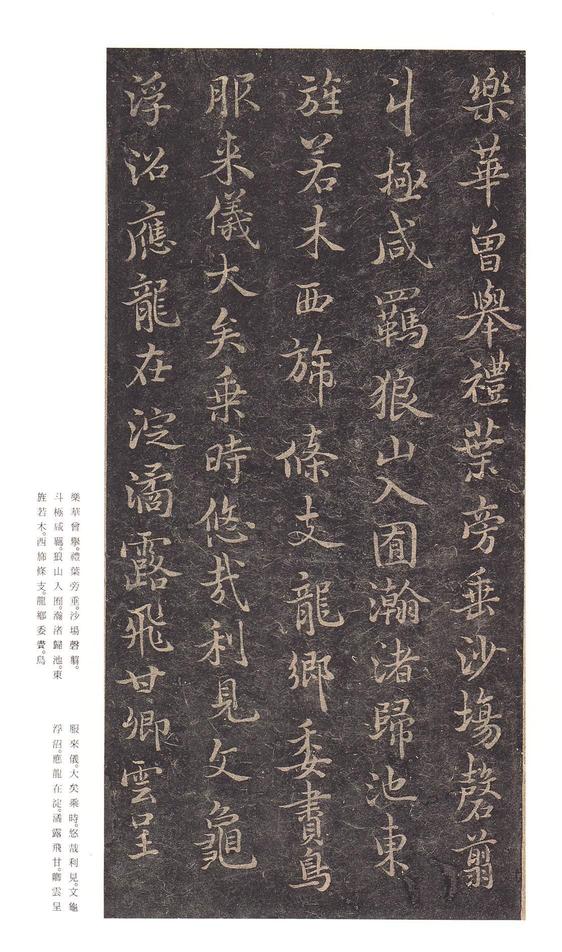 樂華曾舉禮葉旁垂沙場磬翦
斗極咸羈狼山入囿瀚渚歸池東
旌若木西旆條支龍鄉委賮鳥
服来儀大矣乗時悠哉利見文龜
浮沼應龍在淀潏露飛甘卿雲呈
樂華曾舉。禮葉旁垂。沙場磬翦。
斗極咸羈。狼山入囿。瀚渚歸池。東
旌若木。西旆條支。龍鄉委賮。鳥
服來儀。大矣乘時。悠哉利見。文龜
浮沼。應龍在淀。潏露飛甘。卿雲呈